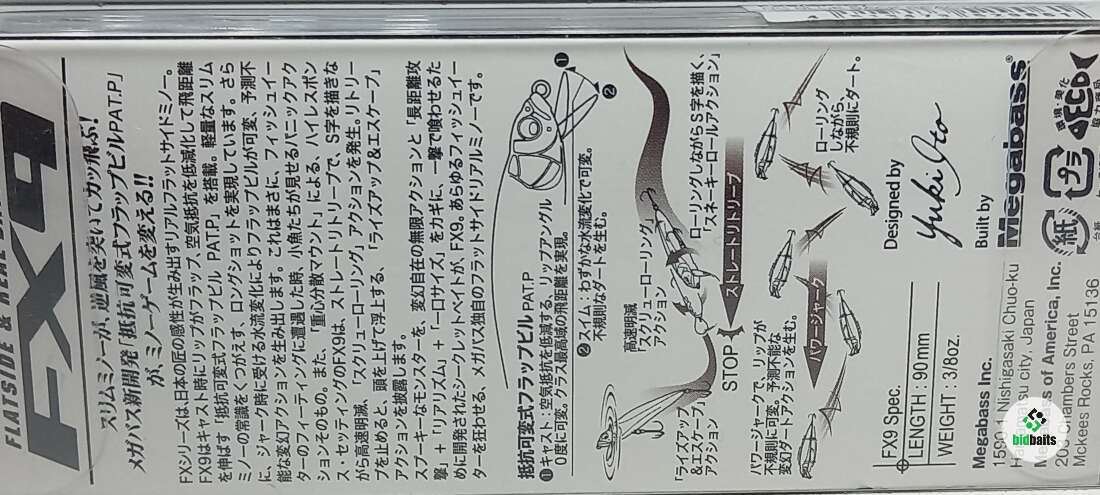 FLATSIDE & REAL
FX9
スリムミノーが、逆風を突いてカッ飛ぶ!
メガバス新開発「抵抗可変式フラップビルPAT.P」
が、ミノーゲームを変える!!
FXシリーズは、日本の匠の感性が生み出すリアルフラットサイドミノー。
FX9はキャスト時にリップがフラップ、空気抵抗を低減化して飛距離
を伸ばす「抵抗可変式フラップビル PAT.P」を搭載。軽量なスリム
ミノーの常識をくつがえす、ロングショットを実現しています。さら
に、ジャーク時に受ける水流変化によりフラップビルが可変、予測不
能な変幻アクションを生み出します。これはまさに、フィッシュイー
ターのフィーティングに遭遇した時、小魚たちが見せるパニックアク
ションそのもの。また、「重心分散マウント」による、ハイレスポン
ス・セッティングのFX9は、ストレートリトリーブで、S字を描きな
がら高速明滅、「スクリューローリング」アクションを発生。リトリー
ブを止めると、頭を上げて浮上する、「ライズアップ&エスケープ」
アクションを披露します。
スプーキーなモンスターを、変幻自在の無限アクションと「長距離攻
撃」+「リアリズム」+「一口サイズ」をカギに、一撃で喰わせるた
めに開発されたシークレットベイトが、FX9。あらゆるフィッシュイー
ターを狂わせる、メガバス独自のフラットサイドリアルミノーです。
抵抗可変式フラップビル PAT.P
❶キャスト:空気抵抗を低減する、リップアングル
0度に可変。クラス最高域の飛距離を実現。
❷スイム:わずかな水流変化で可変。
不規則なダートを生む。
❶
❷
高速明滅
「スクリューローリング」
アクション
ローリングしながらS字を描く、
「スネーキーロールアクション」
ストレートリトリーブ
STOP
「ライズアップ
&エスケープ」
アクション
ローリング
しながら、
不規則にダート。
パワージャーク
パワージャークで、リップが
不規則に可変。予測不能な
変幻ダートアクションを生む。
FX9 Spec.
LENGTH : 90mm
WEIGHT : 3/8oz.
Designed by
Yuki Ito
Built by
Megabass®
Megabass Inc.
1590 Nishigasaki Chuo-ku
Hamamatsu city, Japan
Megabass of America, Inc.
Chambers Street
Mckees Rocks, PA 15136
環境・美化
ECO
協力商品
紙
台紙
プラ
bidbaits